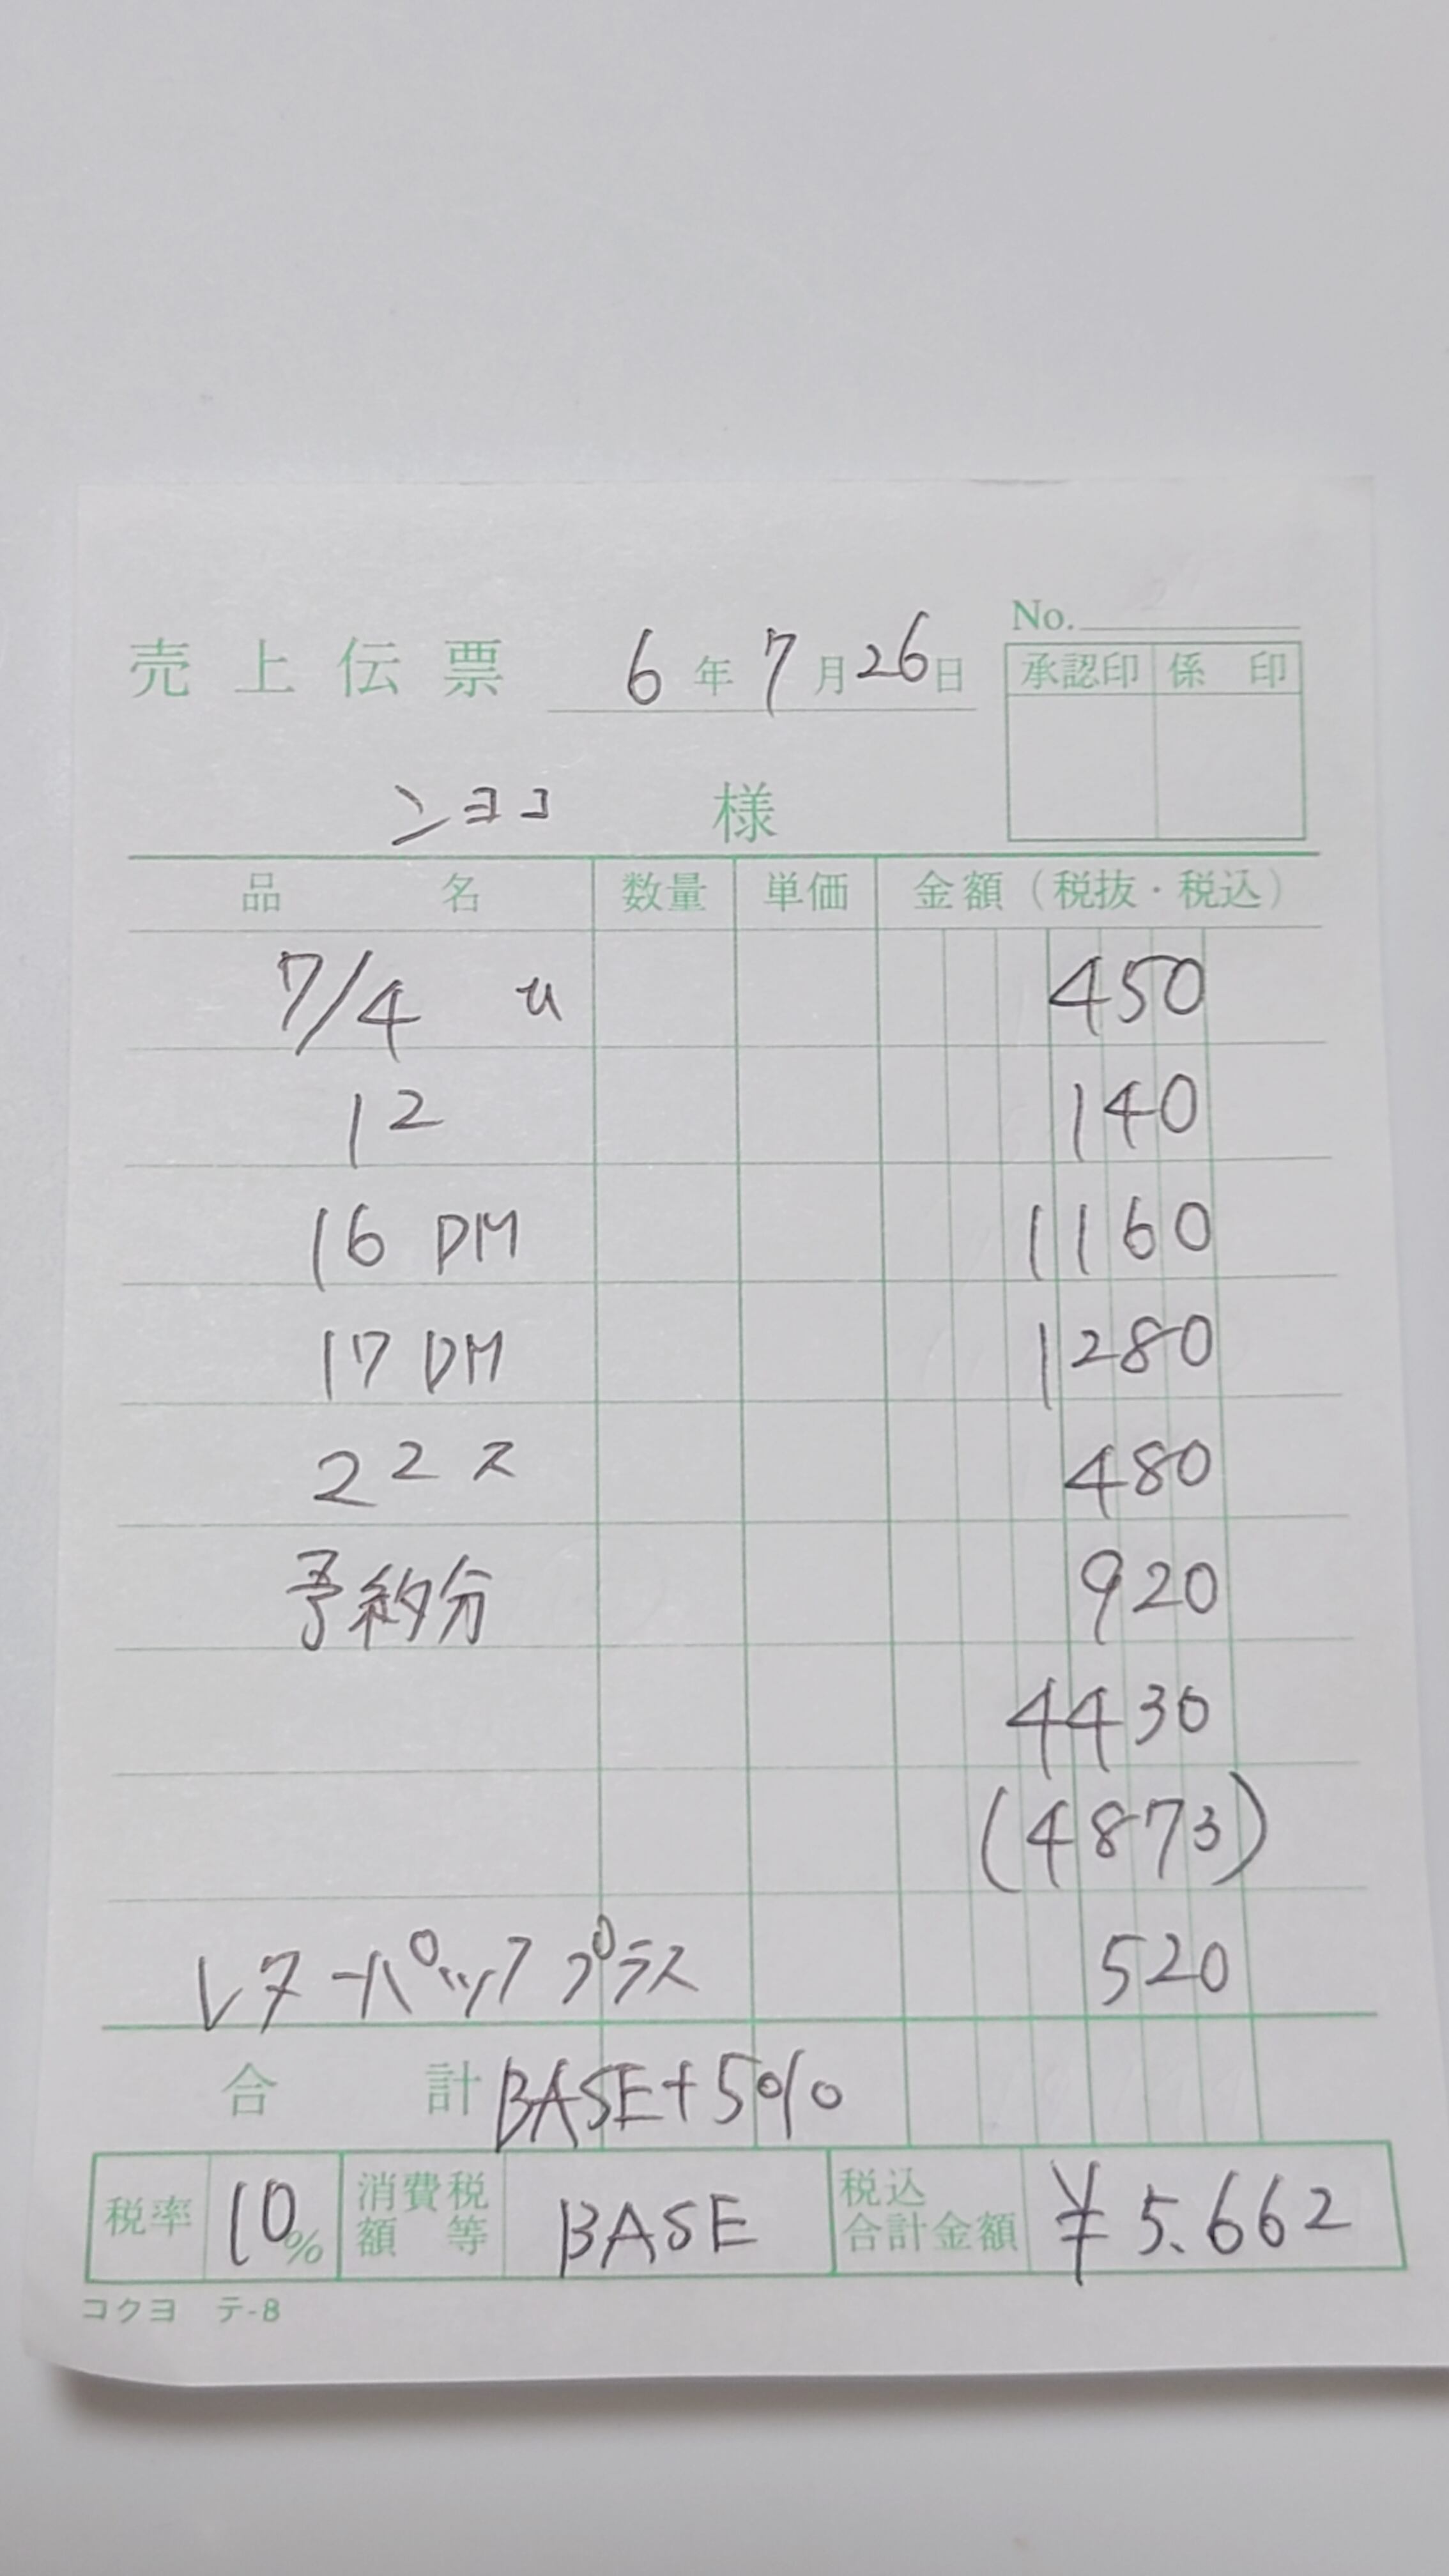 No.
売上伝票 6年7月26日
承認印 係印
ンヨコ 様
品名 数量 単価 金額（税抜・税込）
7/4 u 450
12 140
16 DM 1160
17 DM 1280
22 ス 480
予約分 920
4430
(4873)
レターパックプラス 520
合計 BASE+5%
税率 10% 消費税額等 BASE 税込合計金額 ¥5.662
コクヨ テ-8